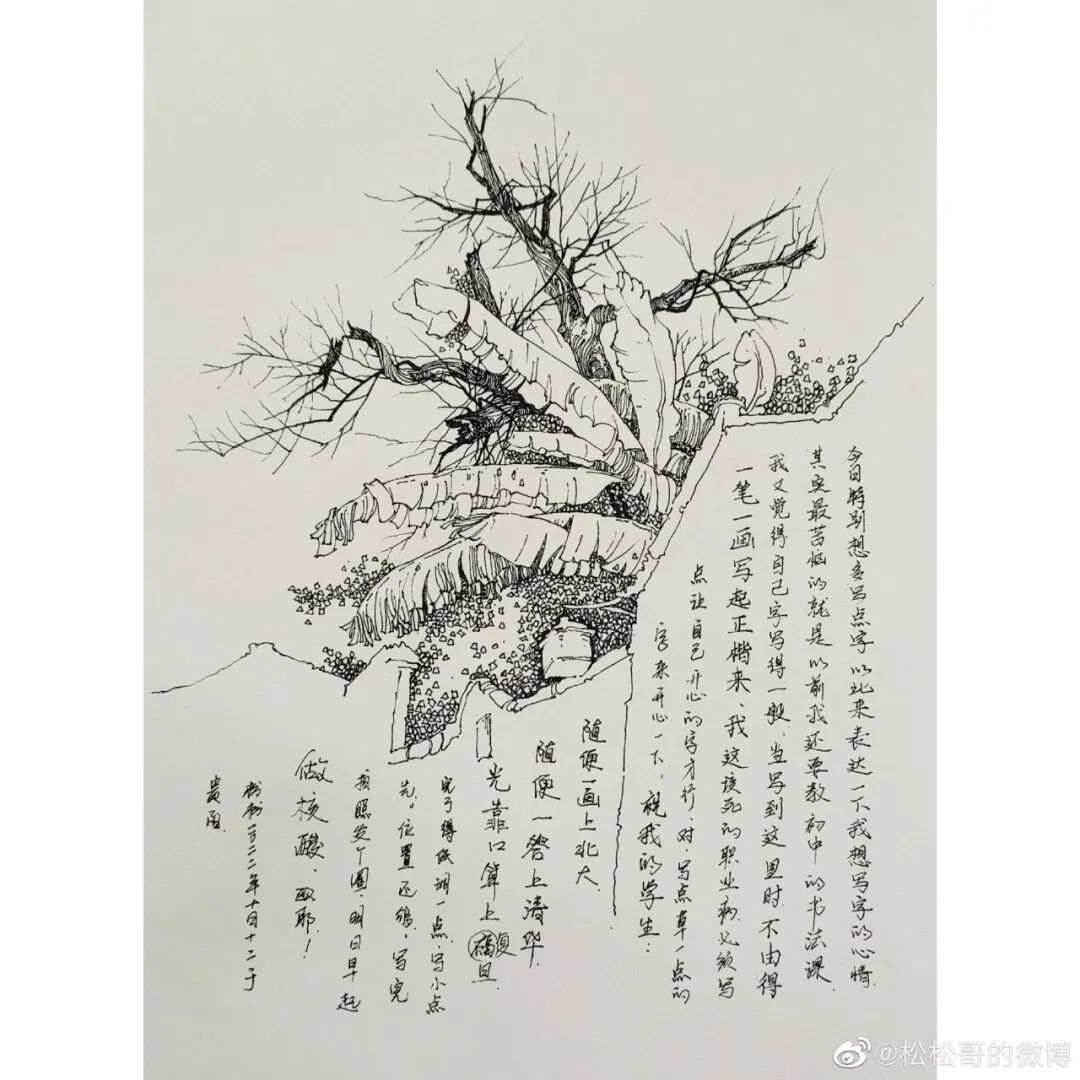 今日特别想多写点字以此来表达一下我想写字的心情.
其实最苦恼的就是以前我还要教初中的书法课
我又觉得自己字写得一般.当写到这里时.不由得
一笔一画写起正楷来、我这该死的职业病必须写
点让自己开心的字才行、对.写点草一点的
字来开心一下、祝我的学生:
随便一画上北大.
随便一答上清华.
光靠口算上福复旦.
完了得低调一点.写小点
先。位置还够.写完
拍照发个圈.明日早起
做核酸、欧耶!
松松二〇二二年十月十二于
贵函
@松松哥的微博